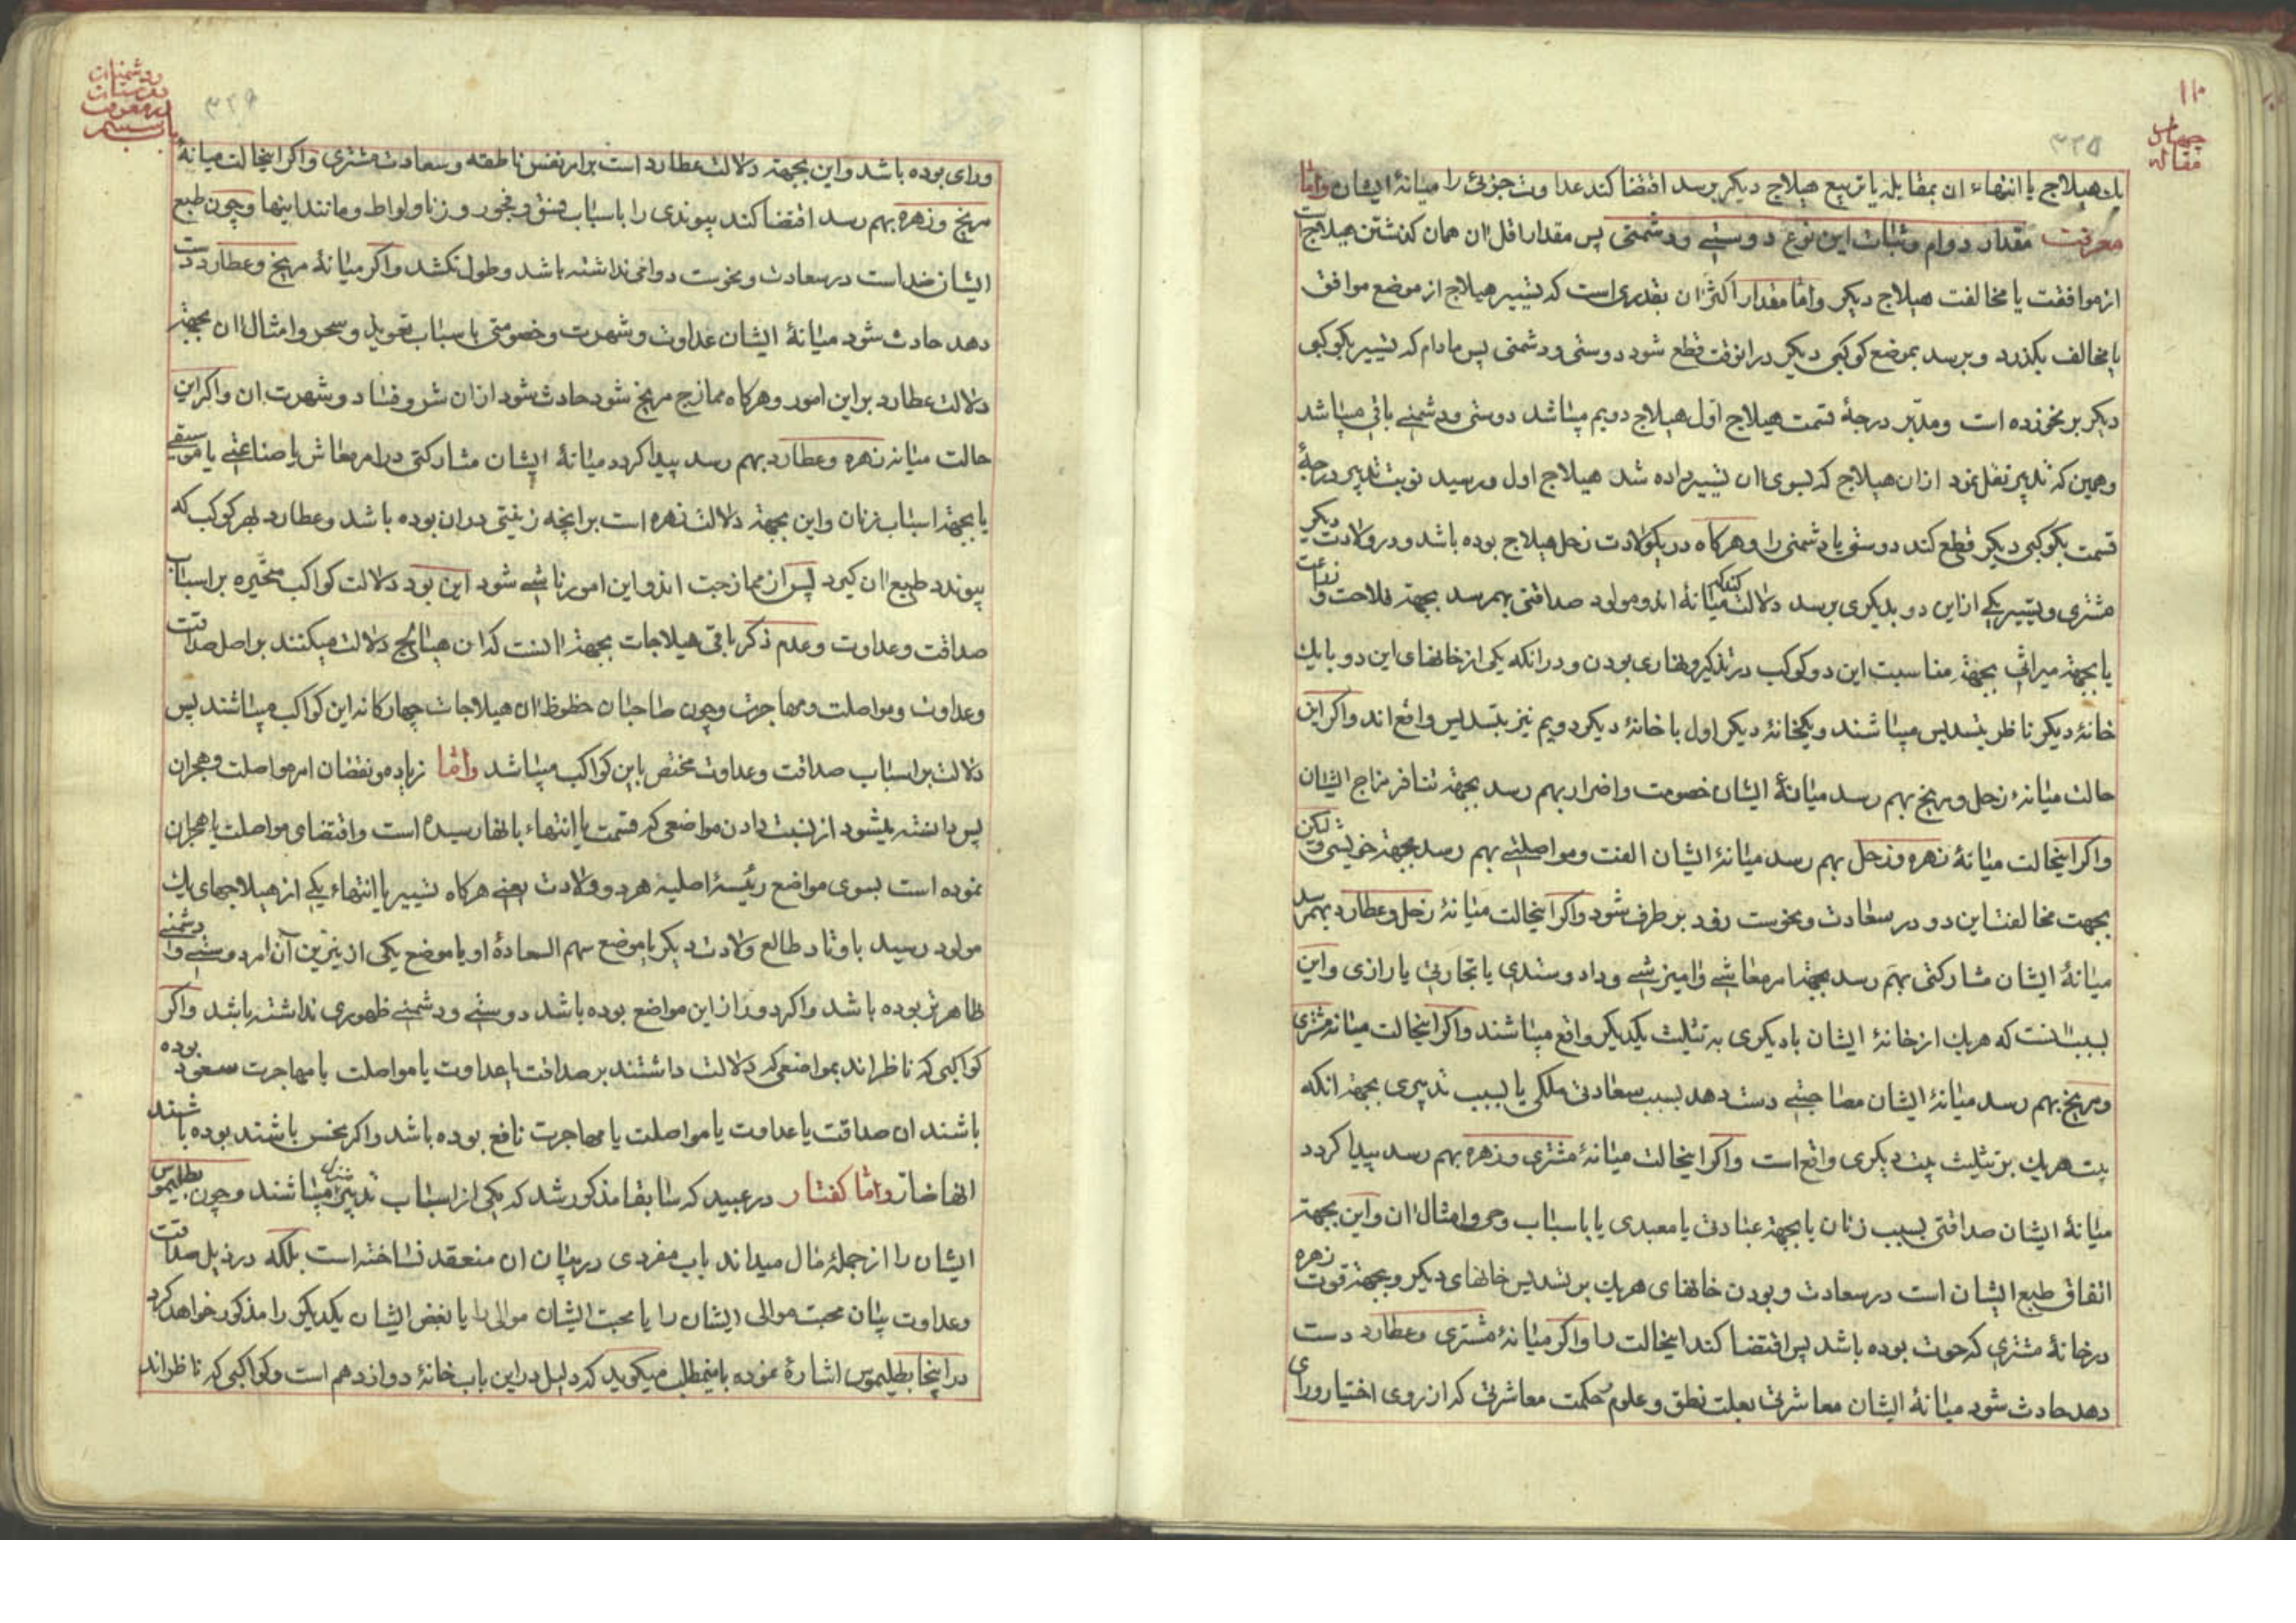 ۱۱۰
چهارم
مقاله
۳۲۵
یك هیلاج یا انتهاء ان بمقابله یا تربیع هیلاج دیکر برسد اقتضا کند عداوت جزئی را میانهٔ ایشان واما
معرفت مقدار دوام و ثبات این نوع دوستی و دشمنی پس مقدار اقل ان همان کذشتن هیلاج است
از موافقت یا مخالفت هیلاج دیکر واما مقدار اکثر ان بقدری است که تسییر هیلاج از موضع موافق
یا مخالف بکذرد و برسد بموضع کوکبی دیکر در انوقت قطع شود دوستی و دشمنی پس مادام که تسییر بکوکبی
دیکر بر نخورده است و مدبر درجهٔ قسمت هیلاج اول هیلاج دویم میباشد دوستی و دشمنی باقی میباشد
و همین که تدبیر نقل نمود از ان هیلاج که بسوی ان تسییر داده شد هیلاج اول و رسید نوبت تدبیر درجهٔ
قسمت بکوکبی دیکر قطع کند دوستی یا دشمنی را و هرکاه در یکولادت زحل هیلاج بوده باشد و در ولادت دیکر
مشتری و تسییر یکی از این دو بدیکری برسد دلالت کند که میانهٔ اندو مولود صداقتی بهم رسد بجهة فلاحت و زراعت
یا بجهة میراثی بجهة مناسبت این دو کوکب در تذکیر و نهاری بودن و در انکه یکی از خانهای این دو با یك
خانهٔ دیکر ناظر بتسدیس میباشند و یکخانهٔ دیکر اول با خانهٔ دیکر دویم نیز بتسدیس واقع اند واکر این
حالت میانهٔ زحل و مریخ بهم رسد میانهٔ ایشان خصومت و اضرار بهم رسد بجهة تنافر مزاج ایشان
واکر اینحالت میانهٔ زهره و زحل بهم رسد میانهٔ ایشان الفت و مواصلتی بهم رسد بجهة خویشی و لکن
بجهت مخالفت این دو در سعادت و نحوست زود بر طرف شود واکر اینحالت میانهٔ زحل و عطارد بهم رسد
میانهٔ ایشان مشارکتی بهم رسد بجهة امر معاشی و امیزشی و داد و ستدی یا تجارتی یا رازی و این
بسبب انست که هریك از خانهٔ ایشان با دیکری به تثلیث یکدیکر واقع میباشند واکر اینحالت میانهٔ مشتری
و مریخ بهم رسد میانهٔ ایشان مصاحبتی دست دهد بسبب سعادت ملکی یا بسبب تدبیری بجهة انکه
بیت هریك بر تثلیث بیت دیکری واقع است واکر اینحالت میانهٔ مشتری و زهره بهم رسد پیدا کردد
میانهٔ ایشان صداقتی بسبب زنان یا بجهة عبادتی یا معبدی یا باسباب وحی و امثال ان و این بجهة
اتفاق طبع ایشان است در سعادت و بودن خانهای هریك بر تسدیس خانهای دیکر و بجهة قوت زهره
در خانهٔ مشتری که حوت بوده باشد پس اقتضا کند اینحالت را واکر میانهٔ مشتری و عطارد دست
دهد حادث شود میانهٔ ایشان معاشرتی بعلت نطق و علوم و حکمت معاشرتی که از روی اختیار و رای
۳۲۶
و دشمنیات
دوستیات
در معرفت
باب بیستم
و رای بوده باشد و این بجهة دلالت عطارد است بر امر نفس ناطقه و سعادت مشتری واکر اینحالت میانهٔ
مریخ و زهره بهم رسد اقتضا کند پیوندی را باسباب فسق و فجور و زنا و لواط و مانند اینها و چون طبع
ایشان ضد است در سعادت و نحوست دوامی نداشته باشد و طول نکشد واکر میانهٔ مریخ و عطارد دست
دهد حادث شود میانهٔ ایشان عداوت و شهرت و خصومتی باسباب تعویل و سحر و امثال ان بجهة
دلالت عطارد بر این امور و هرکاه ممازج مریخ شود حادث شود از ان شر و فساد و شهرت ان واکر این
حالت میانهٔ زهره و عطارد بهم رسد پیدا کردد میانهٔ ایشان مشارکتی در امر معاش یا صناعتی یا موسیقی
یا بجهة اسباب زنان و این بجهة دلالت زهره است بر انچه زینتی در ان بوده باشد و عطارد بهر کوکب که
پیوندد طبع ان کیرد پس از ممازجت اندو این امور ناشی شود این بود دلالت کواکب متحیره بر اسباب
صداقت و عداوت و عدم ذکر باقی هیلاجات بجهة انست که ان هیالج دلالت میکنند بر اصل صداقت
و عداوت و مواصلت و مهاجرت و چون صاحبان حظوظ ان هیلاجات چهارکانه این کواکب میباشند پس
دلالت بر اسباب صداقت و عداوت مختص باین کواکب میباشد واما زیاده و نقصان امر مواصلت و هجران
پس دانسته میشود از نسبت دادن مواضعی که قسمت یا انتهاء بانها رسیده است و اقتضای مواصلت یا هجران
نموده است بسوی مواضع رئیسهٔ اصلیه هر دو ولادت یعنی هرکاه تسییر یا انتهاء یکی از هیلاجهای یك
مولود رسید باوتاد طالع ولادت دیکر یا موضع سهم السعادهٔ او یا موضع یکی از نیرین آن امر دوستی و دشمنی
ظاهرتر بوده باشد واکر دور از این مواضع بوده باشد دوستی و دشمنی ظهوری نداشته باشد واکر
کواکبی که ناظر اند بمواضعی که دلالت داشتند بر صداقت یا عداوت یا مواصلت یا مهاجرت سعود بوده
باشند ان صداقت یا عداوت یا مواصلت یا مهاجرت نافع بوده باشد واکر نحس باشند بوده باشند
انها ضار واما کفتار در عبید که سابقا مذکور شد که یکی از اسباب تدبیر منزل میباشند و چون بطلیموس
ایشان را از جملهٔ مال میداند باب مفردی در بیان ان منعقد نساخته است بلکه در ذیل صداقت
و عداوت بیان محبت موالی ایشان را یا محبت ایشان موالی را یا بغض ایشان یکدیکر را مذکور خواهد کرد
در اینجا بطلیموس اشارهٔ نموده باینمطلب میکوید که دلیل در این باب خانهٔ دوازدهم است و کواکبی که ناظر اند